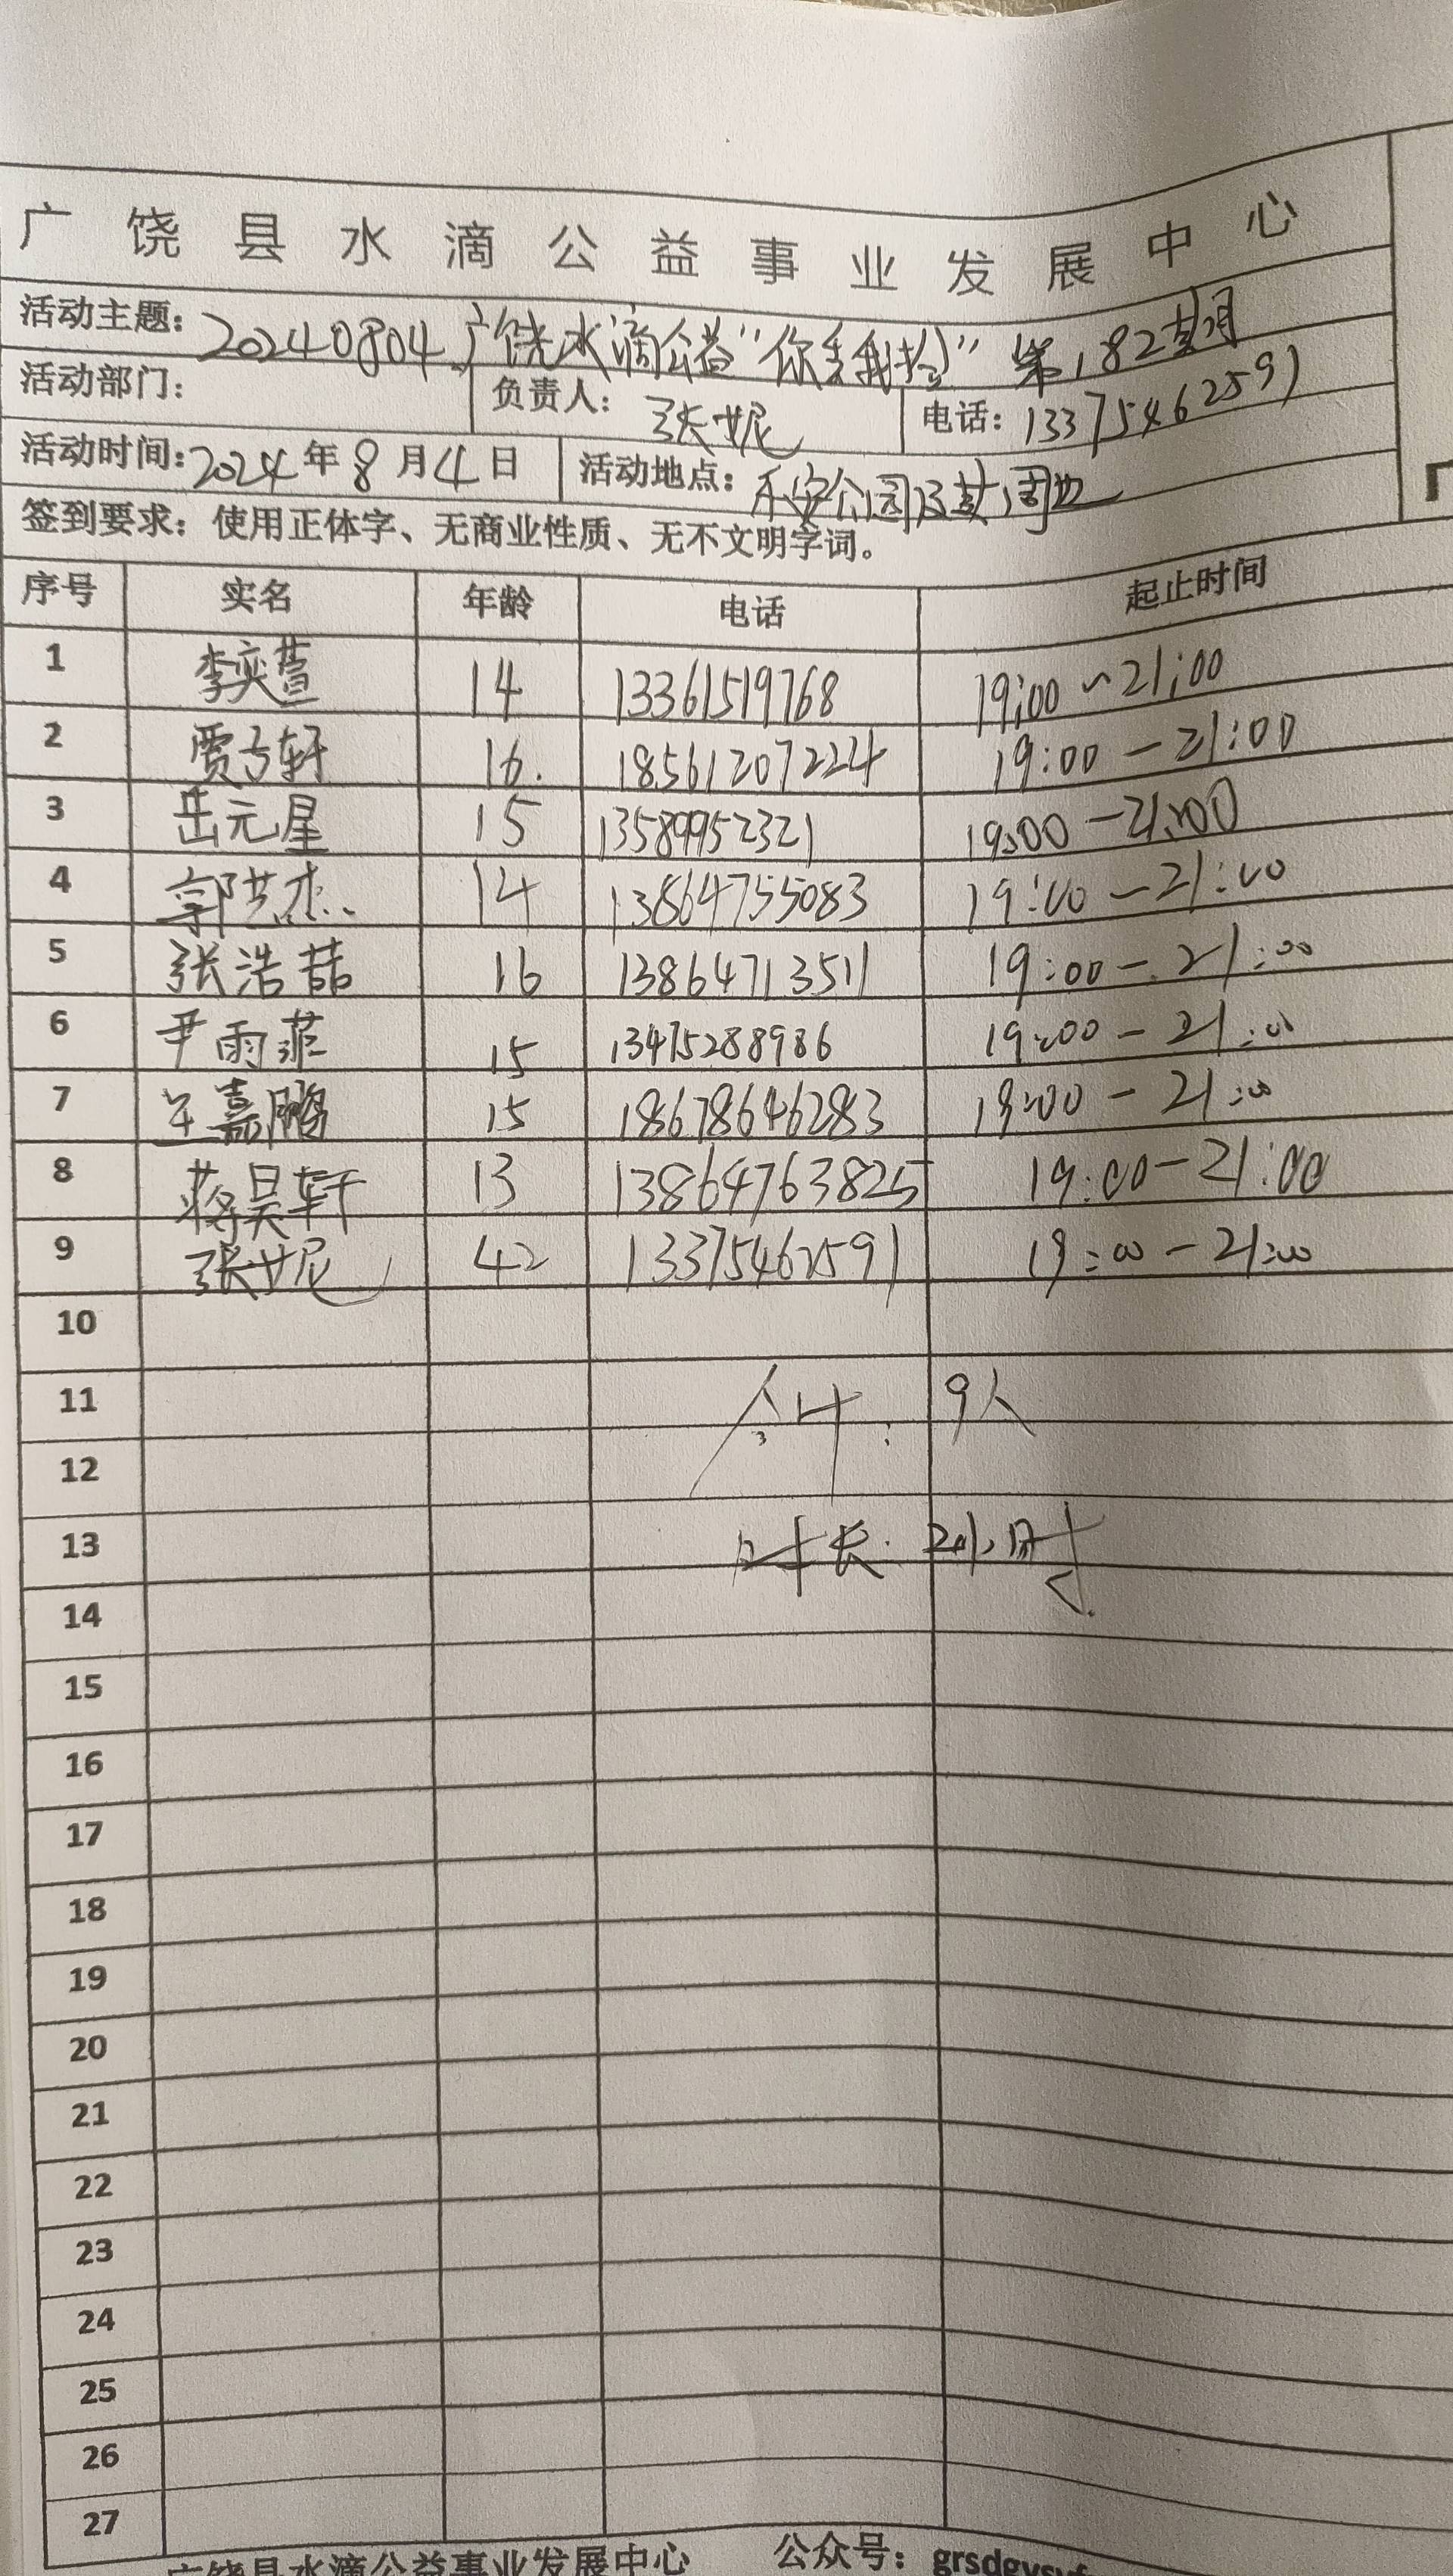 广饶县水滴公益事业发展中心
活动主题：20240804广饶水滴公益“你丢我捡”第182期
活动部门： 负责人：张妮 电话：13375462591
活动时间：2024年8月4日 活动地点：乐安公园及其周边
签到要求：使用正体字、无商业性质、无不文明字词。
序号 实名 年龄 电话 起止时间
1 李奕萱 14 13361519768 19:00~21:00
2 贾方轩 16. 18561207224 19:00-21:00
3 岳元星 15 13589952321 19:00-21:00
4 郭洪杰 14 13864755083 19:00-21:00
5 张浩喆 16 13864713511 19:00-21:00
6 尹雨菲 15 13475288986 19:00-21:00
7 王嘉鹏 15 18678646283 19:00-21:00
8 蒋昊轩 13 13864763825 19:00-21:00
9 张妮 42 13375462591 19:00-21:00
10
11 合计：9人
12
13 时长：2小时
14
15
16
17
18
19
20
21
22
23
24
25
26
27
广饶县水滴公益事业发展中心 公众号：